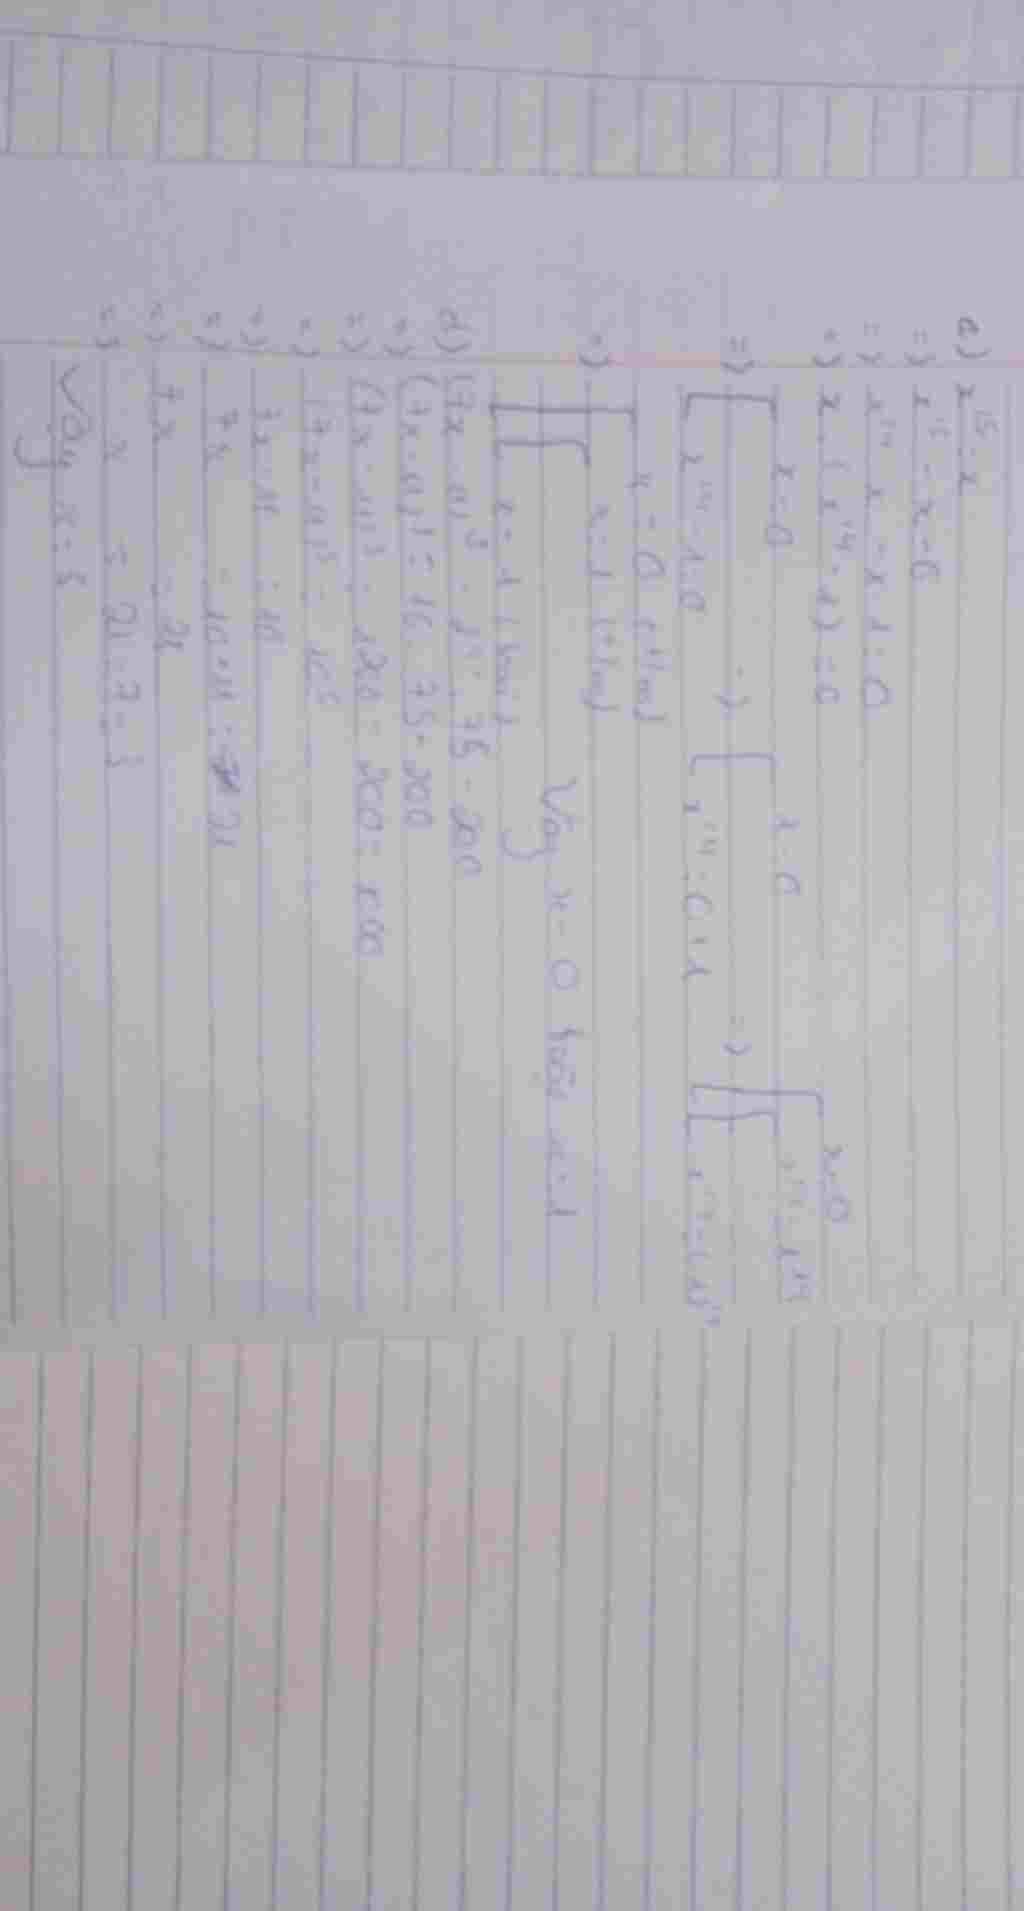 c) x¹⁵ = x
=) x¹⁵ - x = 0
=) x¹⁴ . x - x . 1 = 0
=) x . (x¹⁴ - 1) = 0
=) [ x = 0 =) [ x = 0 =) [ x = 0
x¹⁴ - 1 = 0 x¹⁴ = 0 + 1 [ x¹⁴ = 1¹⁴
x = 0 (t/m)
=) [ x = 1 (t/m)
x = -1
Vậy x = 0 hoặc x = 1
d) (7x - 11)³ = 2⁵ . 200
=) (7x - 11)³ = 200
=) (7x - 11)³ = 200 = 1000
=) (7x - 11)³ = 10³
=) 7x - 11 = 10
=) 7x = 10 + 11 = 21
=) 7x = 21
=) x = 21 : 7 = 3
Vậy x = 3